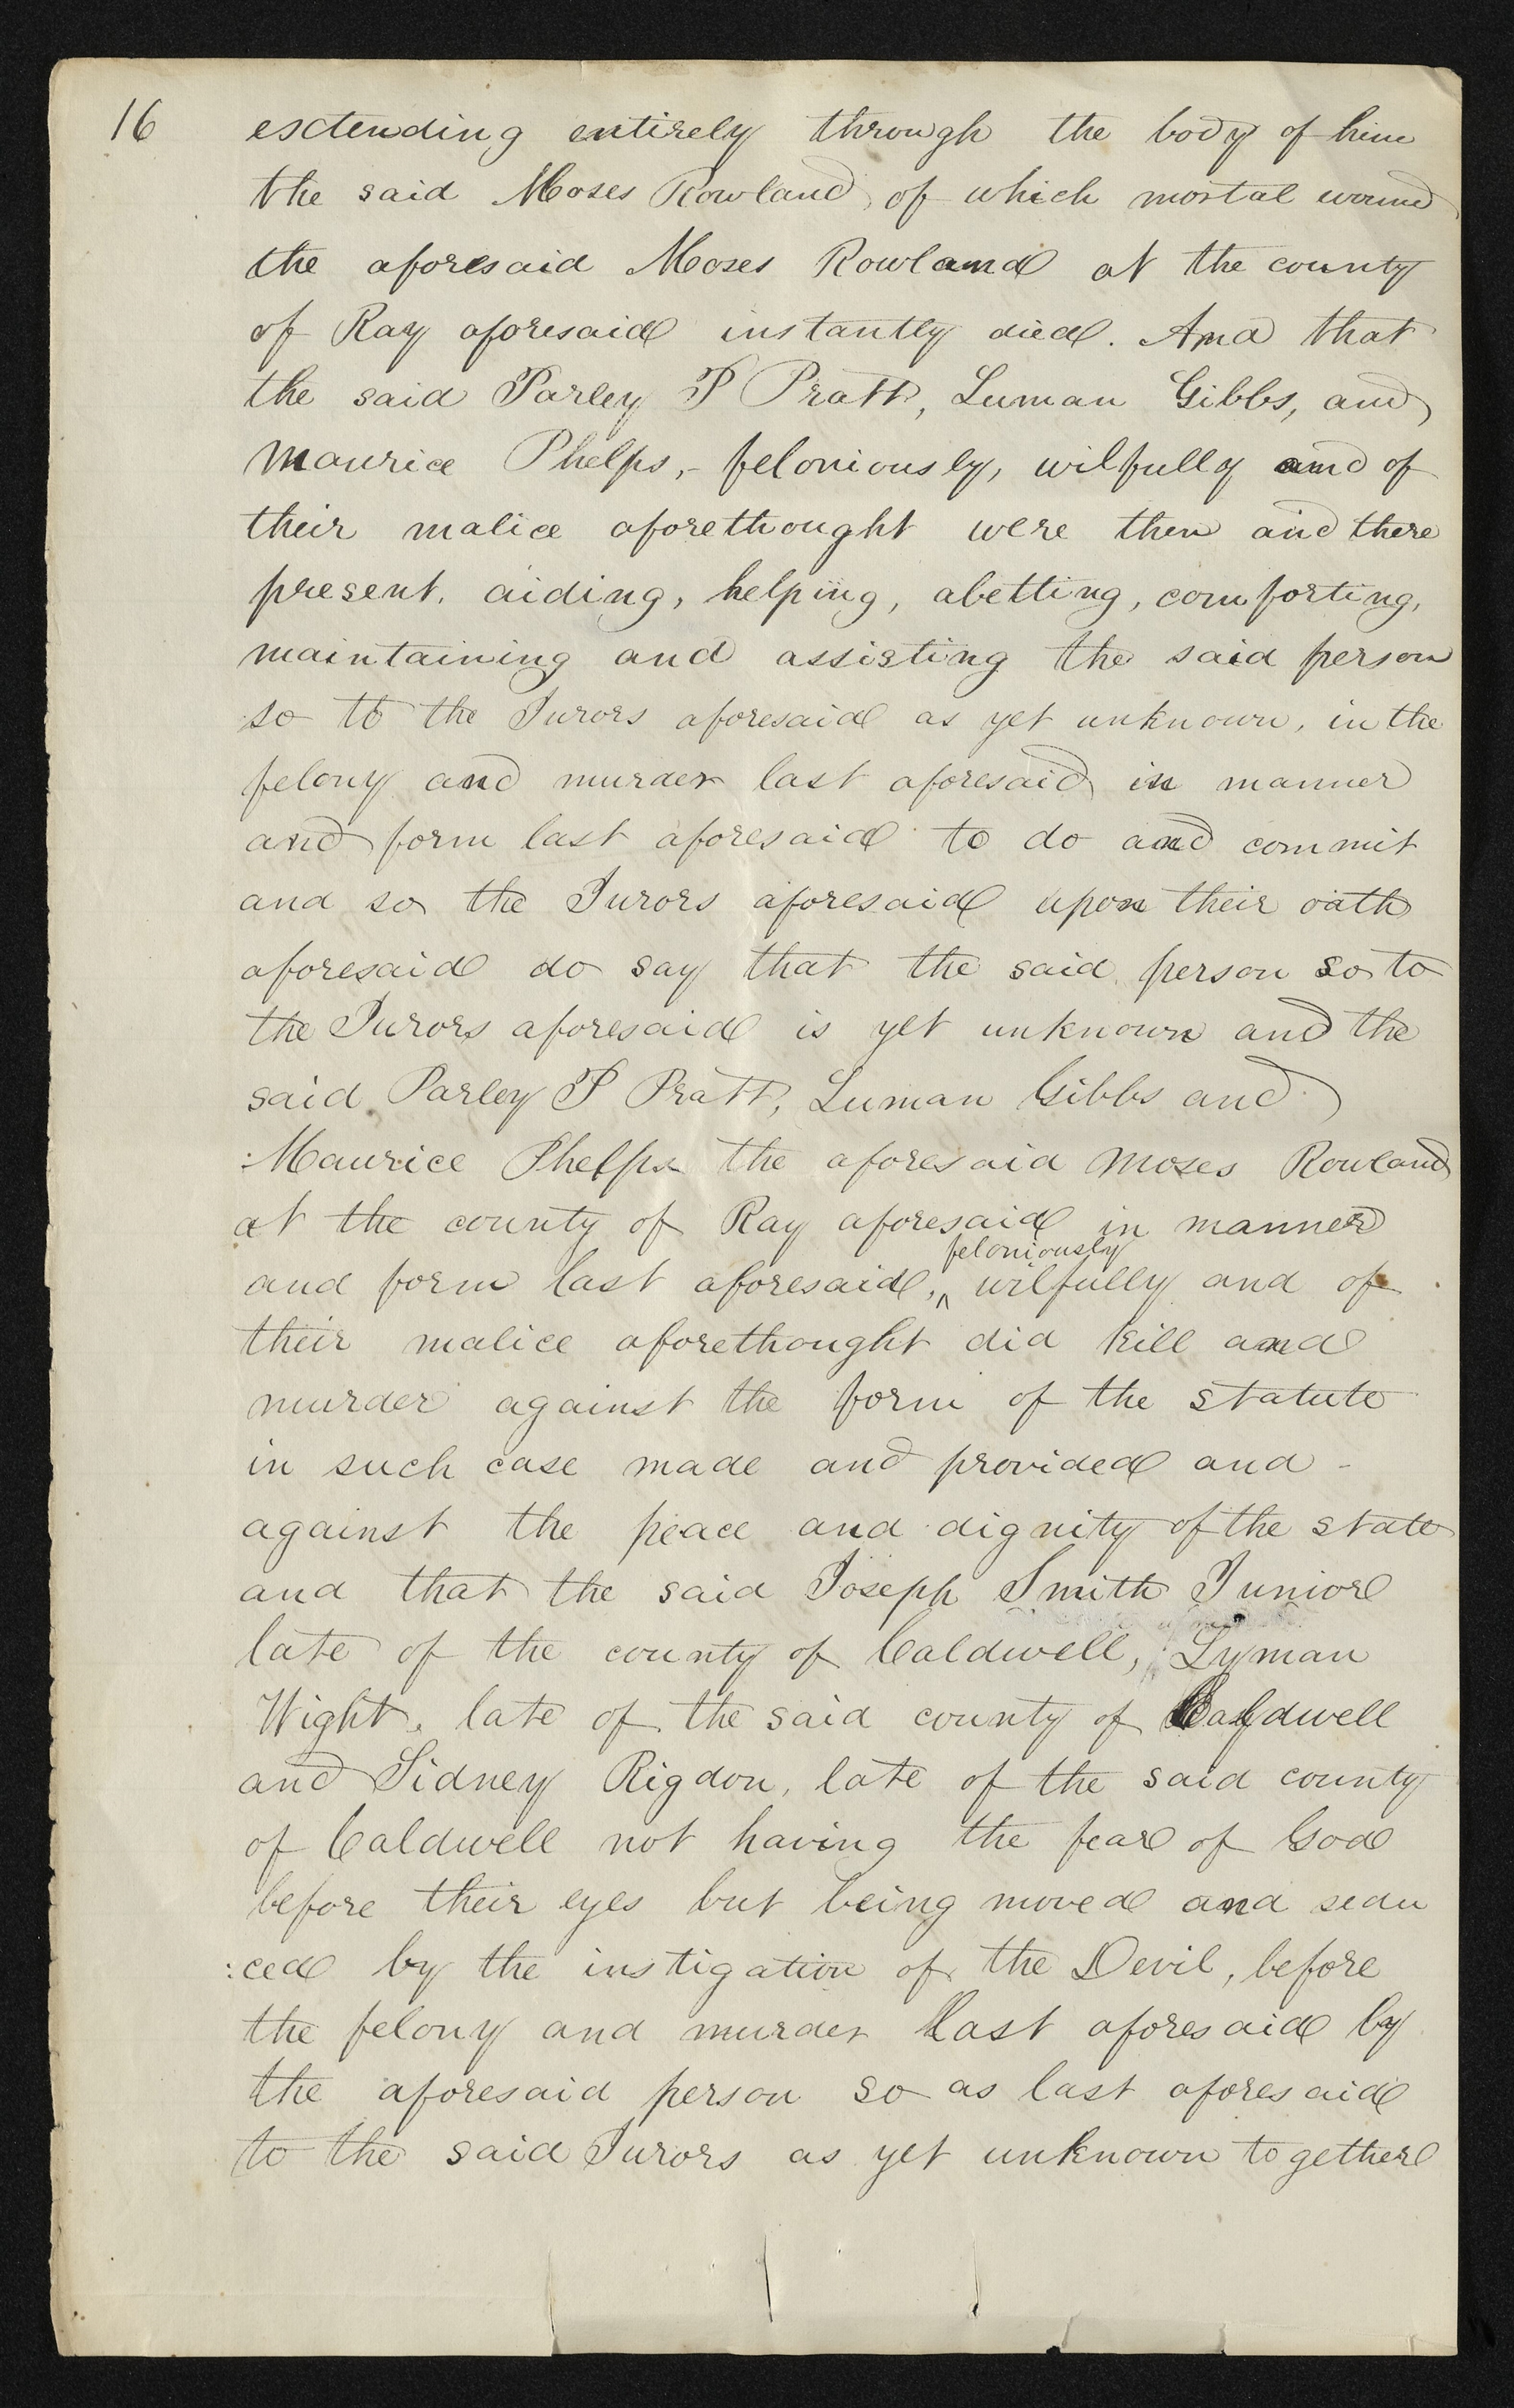 16
extending entirely through the body of him
the said Moses Rowland of which mortal wound
the aforesaid Moses Rowland at the county
of Ray aforesaid instantly died. And that
the said Parley P Pratt, Luman Gibbs, and
Maurice Phelps,- feloniously, wilfully and of
their malice aforethought were then and there
present, aiding, helping, abetting, comforting,
maintaining and assisting the said person
so to the Jurors aforesaid as yet unknown, in the
felony and murder last aforesaid in manner
and form last aforesaid to do and commit
and so the Jurors aforesaid upon their oath
aforesaid do say that the said person so to
the Jurors aforesaid is yet unknown and the
said Parley P Pratt, Luman Gibbs and
:Maurice Phelps the aforesaid Moses Rowland
at the county of Ray aforesaid in manner
feloniously
and form last aforesaid, ^ wilfully and of
their malice aforethought did kill and
murder against the form of the statute
in such case made and provided and -
against the peace and dignity of the state
and that the said Joseph Smith Junior
late of the county of Caldwell, Lyman
Wight, late of the said county of Caldwell
and Sidney Rigdon, late of the said county
of Caldwell not having the fear of God
before their eyes but being moved and sedu
:ced by the instigation of the Devil, before
the felony and murder last aforesaid by
the aforesaid person so as last aforesaid
to the said Jurors as yet unknown together